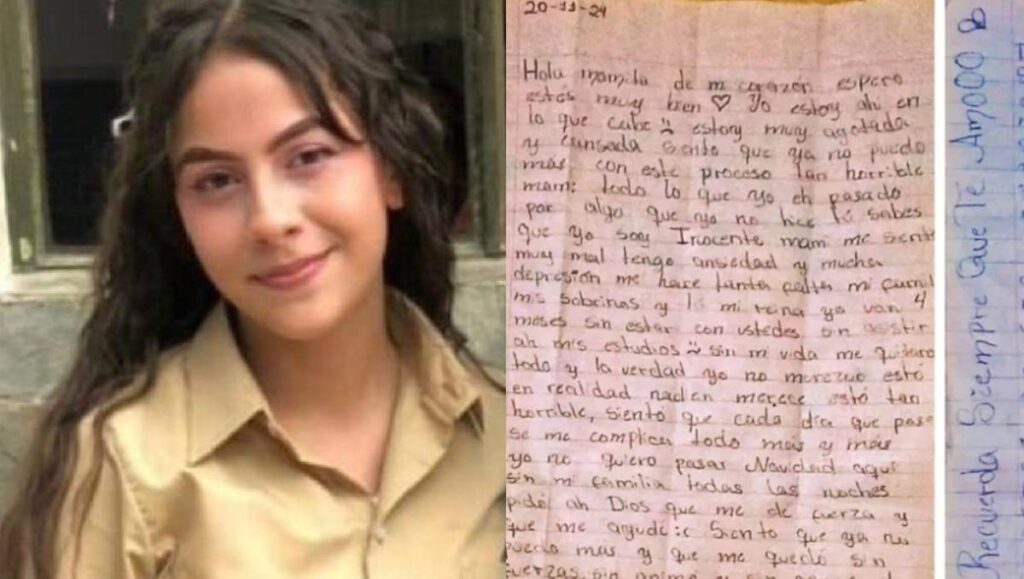 20-11-24
Hola mamita de mi corazón espero
estés muy bien ♡ Yo estoy ahi en
lo que cabe :( estoy muy agotada
y cansada siento que ya no puedo
más con este proceso tan horrible
mami todo lo que yo eh pasado
por algo que yo no hice tú sabes
que yo soy Inocente mami me siento
muy mal tengo ansiedad y mucha
depresión me hace tanta falta mi famil
mis sobrinas y tú mi reina ya van 4
meses sin estar con ustedes sin asistir
ah mis estudios :( sin mi vida me quitaro
todo y la verdad yo no merezco esto
en realidad nadien merece esto tan
horrible, siento que cada día que pasa
se me complica todo más y más
yo no quiero pasar Navidad aquí
sin mi familia todas las noches
pido ah Dios que me de fuerza y
que me ayude :c Siento que ya no
puedo mas y que me quedó sin
fuerzas sin animo y sin
Recuerda Siempre Que Te Amooo